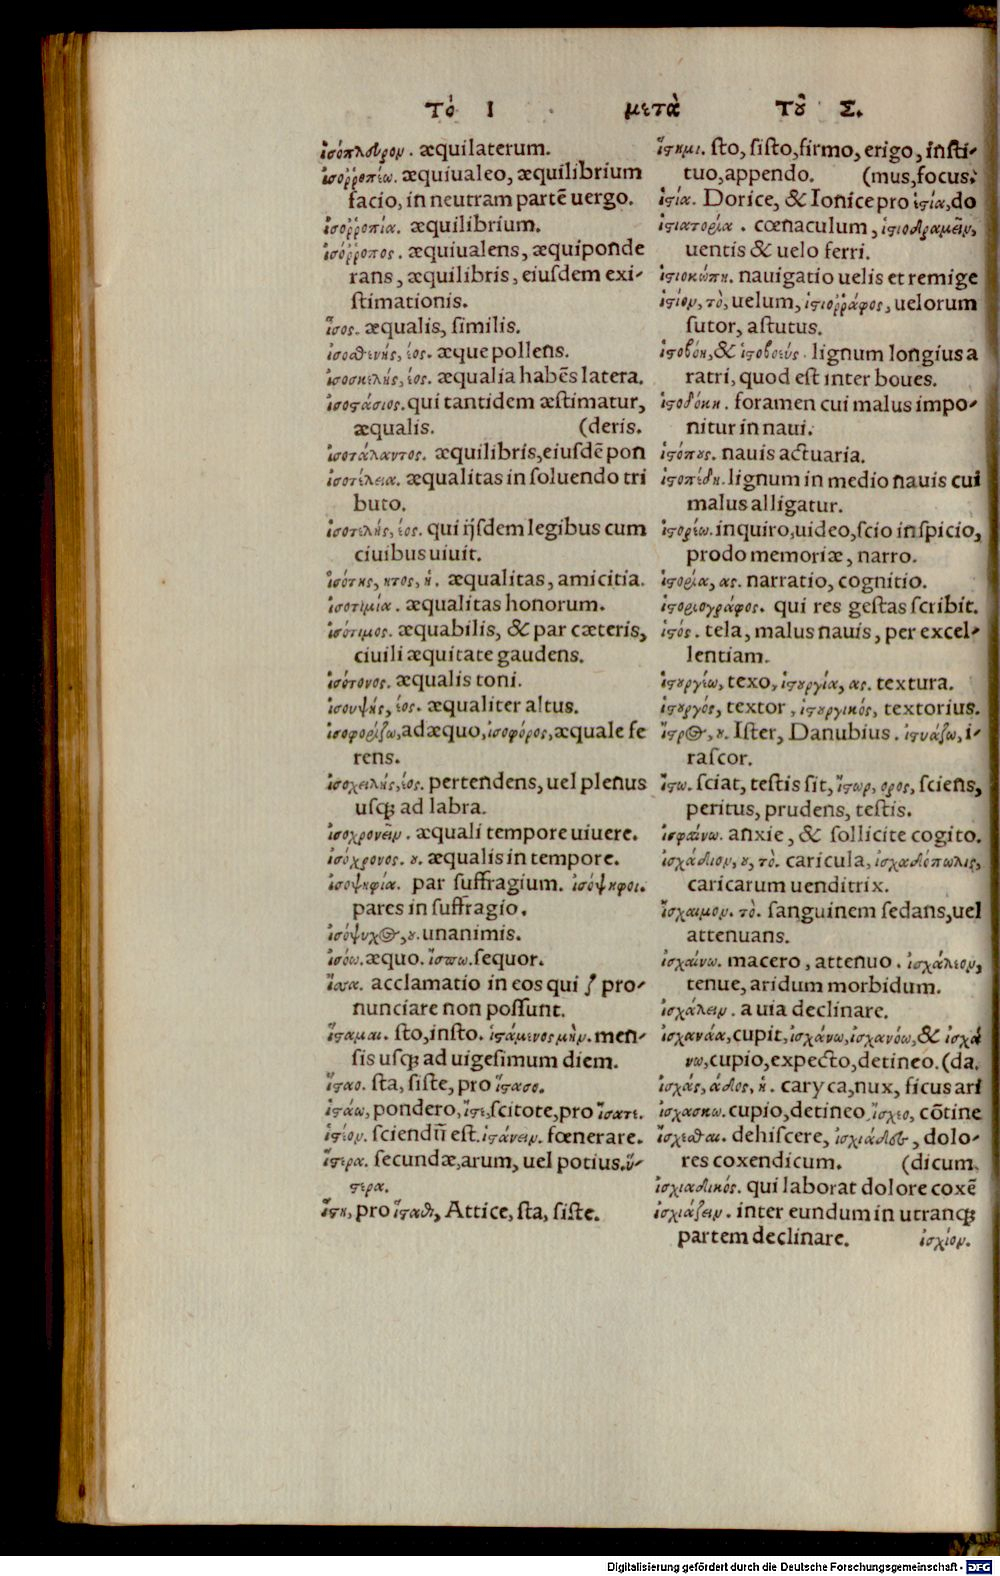 τὸ Ι μετὰ τοῦ Σ.
ἰσόπλευρον. æquilaterum.
ἰσοῤῥοπέω. æquiualeo, æquilibrium
facio, in neutram partē uergo.
ἰσοῤῥοπία. æquilibrium.
ἰσόῤῥοπος. æquiualens, æquiponde
rans, æquilibris, eiusdem exi-
stimationis.
ἴσος. æqualis, similis.
ἰσοσθενής, έος. æque pollens.
ἰσοσκελής, έος. æqualia habēs latera.
ἰσοστάσιος. qui tantidem æstimatur,
æqualis. (deris.
ἰσοτάλαντος. æquilibris, eiusdē pon
ἰσοτέλεια. æqualitas in soluendo tri
buto.
ἰσοτελής, έος. qui ijsdem legibus cum
ciuibus uiuit.
ἰσότης, ητος, ἡ. æqualitas, amicitia.
ἰσοτιμία. æqualitas honorum.
ἰσότιμος. æquabilis, & par cæteris,
ciuili æquitate gaudens.
ἰσότονος. æqualis toni.
ἰσουψής, έος. æqualiter altus.
ἰσοφορίζω, adæquo, ἰσοφόρος, æquale fe
rens.
ἰσοχειλής, έος. pertendens, uel plenus
usqꝫ ad labra.
ἰσοχρονεῖν. æquali tempore uiuere.
ἰσόχρονος. ου. æqualis in tempore.
ἰσοψηφία. par suffragium. ἰσόψηφοι.
pares in suffragio.
ἰσόψυχος, ου. unanimis.
ἰσόω. æquo. ἵσπω. sequor.
ἴσσα. acclamatio in eos qui ſ pro-
nunciare non possunt.
ἵσταμαι. sto, insto. ἱστάμενος μὴν. men-
sis usqꝫ ad uigesimum diem.
ἵσταο. sta, siste, pro ἵστασο.
ἱστάω, pondero, ἴστε, scitote, pro ἴσατε.
ἰστέον. sciendū est. ἱστάνειν. fœnerare.
ἵστερα. secundæ, arum, uel potius. ὕ-
στερα.
ἵστη, pro ἵσταθι, Attice, sta, siste.
ἵστημι. sto, sisto, firmo, erigo, insti-
tuo, appendo. (mus, focus.
ἱστία. Dorice, & Ionice pro ἑστία, do
ἱστιατορία. cœnaculum, ἱστιοδραμεῖν,
uentis & uelo ferri.
ἱστιοκώπη. nauigatio uelis et remige
ἱστίον, τὸ, uelum, ἱστιοῤῥάφος, uelorum
sutor, astutus.
ἱστοβόη, & ἱστοβοεύς. lignum longius a
ratri, quod est inter boues.
ἱστοδόκη. foramen cui malus impo-
nitur in naui.
ἱστόπους. nauis actuaria.
ἱστοπέδη. lignum in medio nauis cui
malus alligatur.
ἱστορέω. inquiro, uideo, scio inspicio,
prodo memoriæ, narro.
ἱστορία, ας. narratio, cognitio.
ἱστοριογράφος. qui res gestas scribit.
ἱστός. tela, malus nauis, per excel-
lentiam.
ἱστουργέω, texo, ἱστουργία, ας. textura.
ἱστουργός, textor, ἱστουργικός, textorius.
ἴστρος, ου. Ister, Danubius. ἱστυάζω, i-
rascor.
ἴστω. sciat, testis sit, ἵστωρ, ορος, sciens,
peritus, prudens, testis.
ἰσφαίνω. anxie, & sollicite cogito.
ἰσχάδιον, ου, τὸ. caricula, ἰσχαδόπωλις,
caricarum uenditrix.
ἴσχαιμον. τὸ. sanguinem sedans, uel
attenuans.
ἰσχαίνω. macero, attenuo. ἰσχάλεον,
tenue, aridum morbidum.
ἰσχάλειν. a uia declinare.
ἰσχανάα, cupit, ἰσχάνω, ἰσχανόω, & ἰσχά
νω, cupio, expecto, detineo. (da.
ἰσχάς, άδος, ἡ. caryca, nux, ficus ari
ἰσχασκω. cupio, detineo, ἴσχεο, cōtine
ἴσχεσθαι. dehiscere, ἰσχιάδες, dolo-
res coxendicum. (dicum.
ἰσχιαδικός. qui laborat dolore coxē
ἰσχιάζειν. inter eundum in utranqꝫ
partem declinare. ἰσχίον.
Digitalisierung gefördert durch die Deutsche Forschungsgemeinschaft - DFG